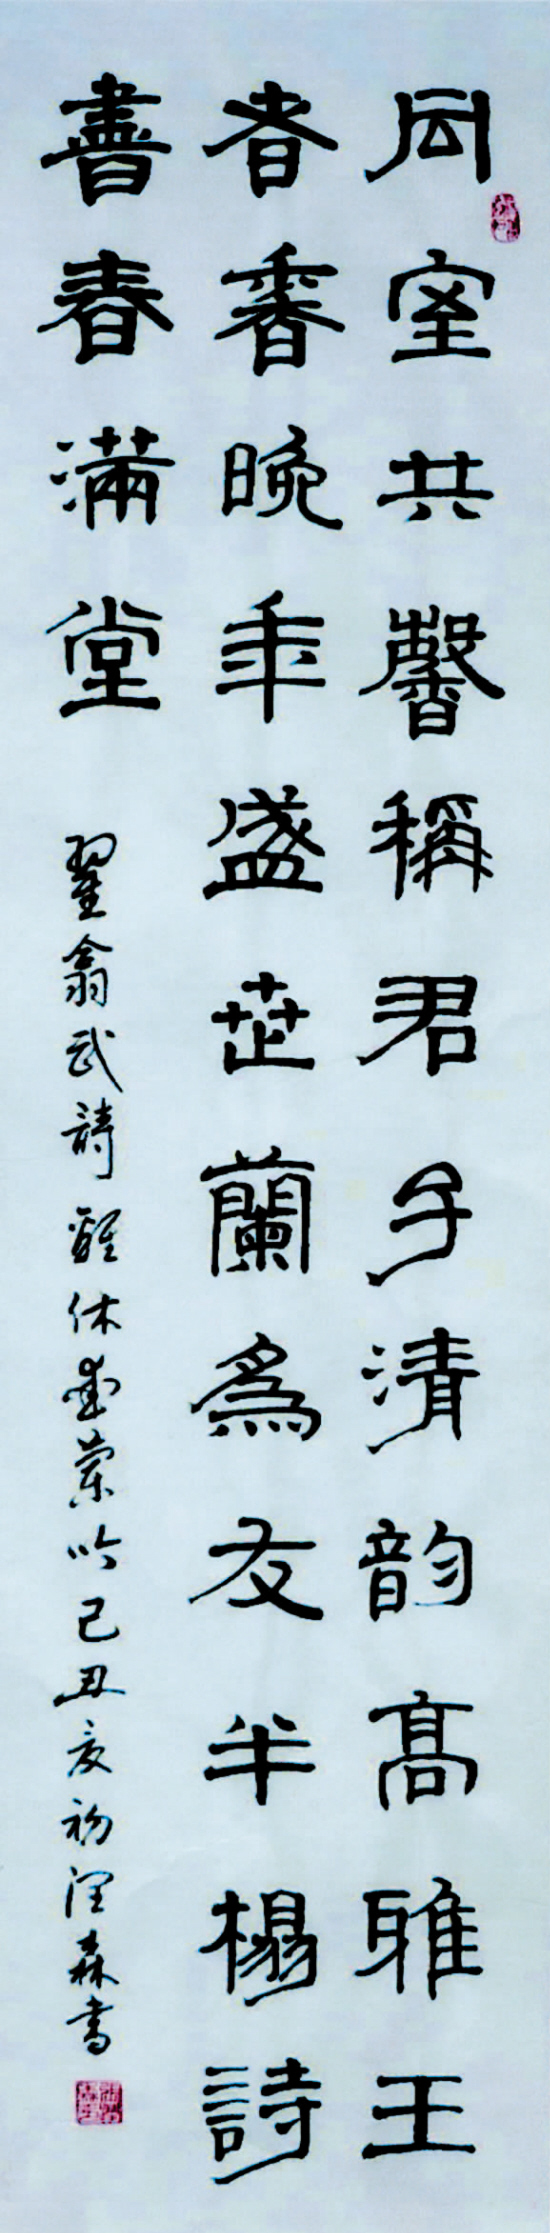 同室共馨稱君子清韵高雅王
者香晚年盛世蘭為友半榻詩
書春滿堂
翟翕武詩離休愛蘭吟己丑夏初潤森書